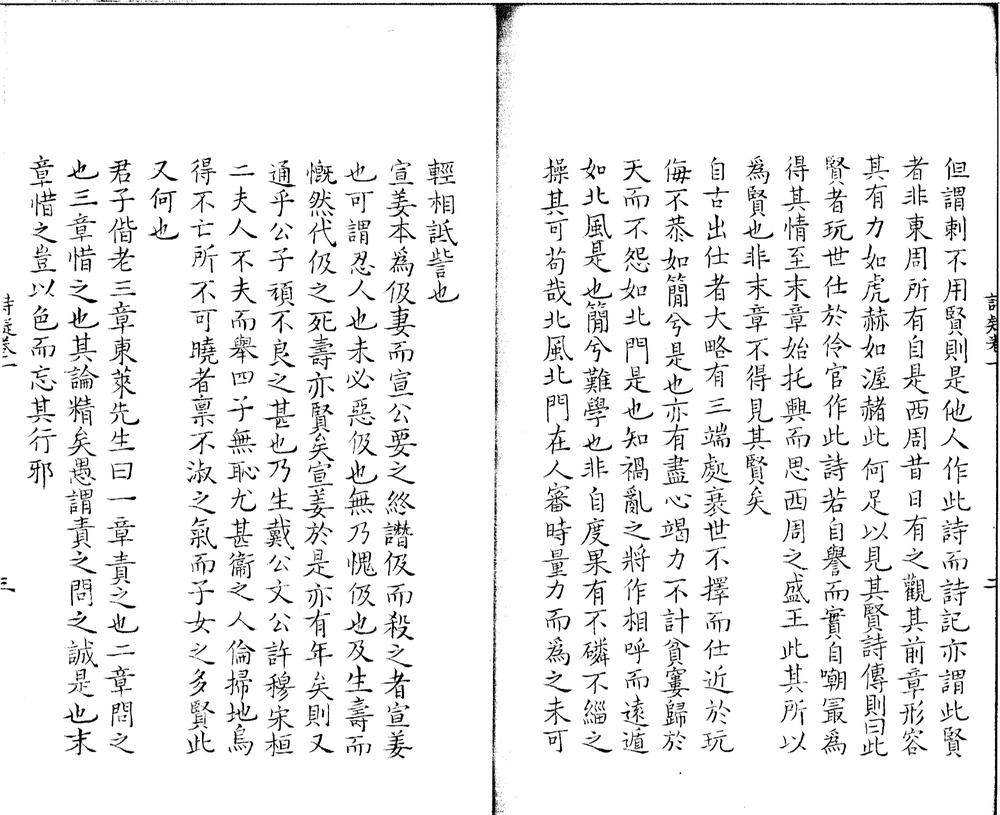 詩疑卷一
二
但謂刺不用賢則是他人作此詩而詩記亦謂此賢
者非東周所有自是西周昔日有之觀其前章形容
其有力如虎赫如渥赭此何足以見其賢詩傳則曰此
賢者玩世仕於伶官作此詩若自譽而實自嘲冣為
得其情至末章始托興而思西周之盛王此其所以
為賢也非末章不得見其賢矣
自古出仕者大略有三端處衰世不擇而仕近於玩
侮不恭如簡兮是也亦有盡心竭力不計貧窶歸於
天而不怨如北門是也知禍亂之將作相呼而遠遁
如北風是也簡兮難學也非自度果有不磷不緇之
操其可苟哉北風北門在人審時量力而為之未可
輕相詆訾也
宣姜本為伋妻而宣公要之終譖伋而殺之者宣姜
也可謂忍人也未必惡伋也無乃愧伋也及生壽而
慨然代伋之死壽亦賢矣宣姜於是亦有年矣則又
通乎公子頑不良之甚也乃生戴公文公許穆宋桓
二夫人不夫而舉四子無恥尤甚衞之人倫掃地烏
得不亡所不可曉者禀不淑之氣而子女之多賢此
又何也
君子偕老三章東萊先生曰一章責之也二章問之
也三章惜之也其論精矣愚謂責之問之誠是也末
章惜之豈以色而忘其行邪
詩疑卷一
三